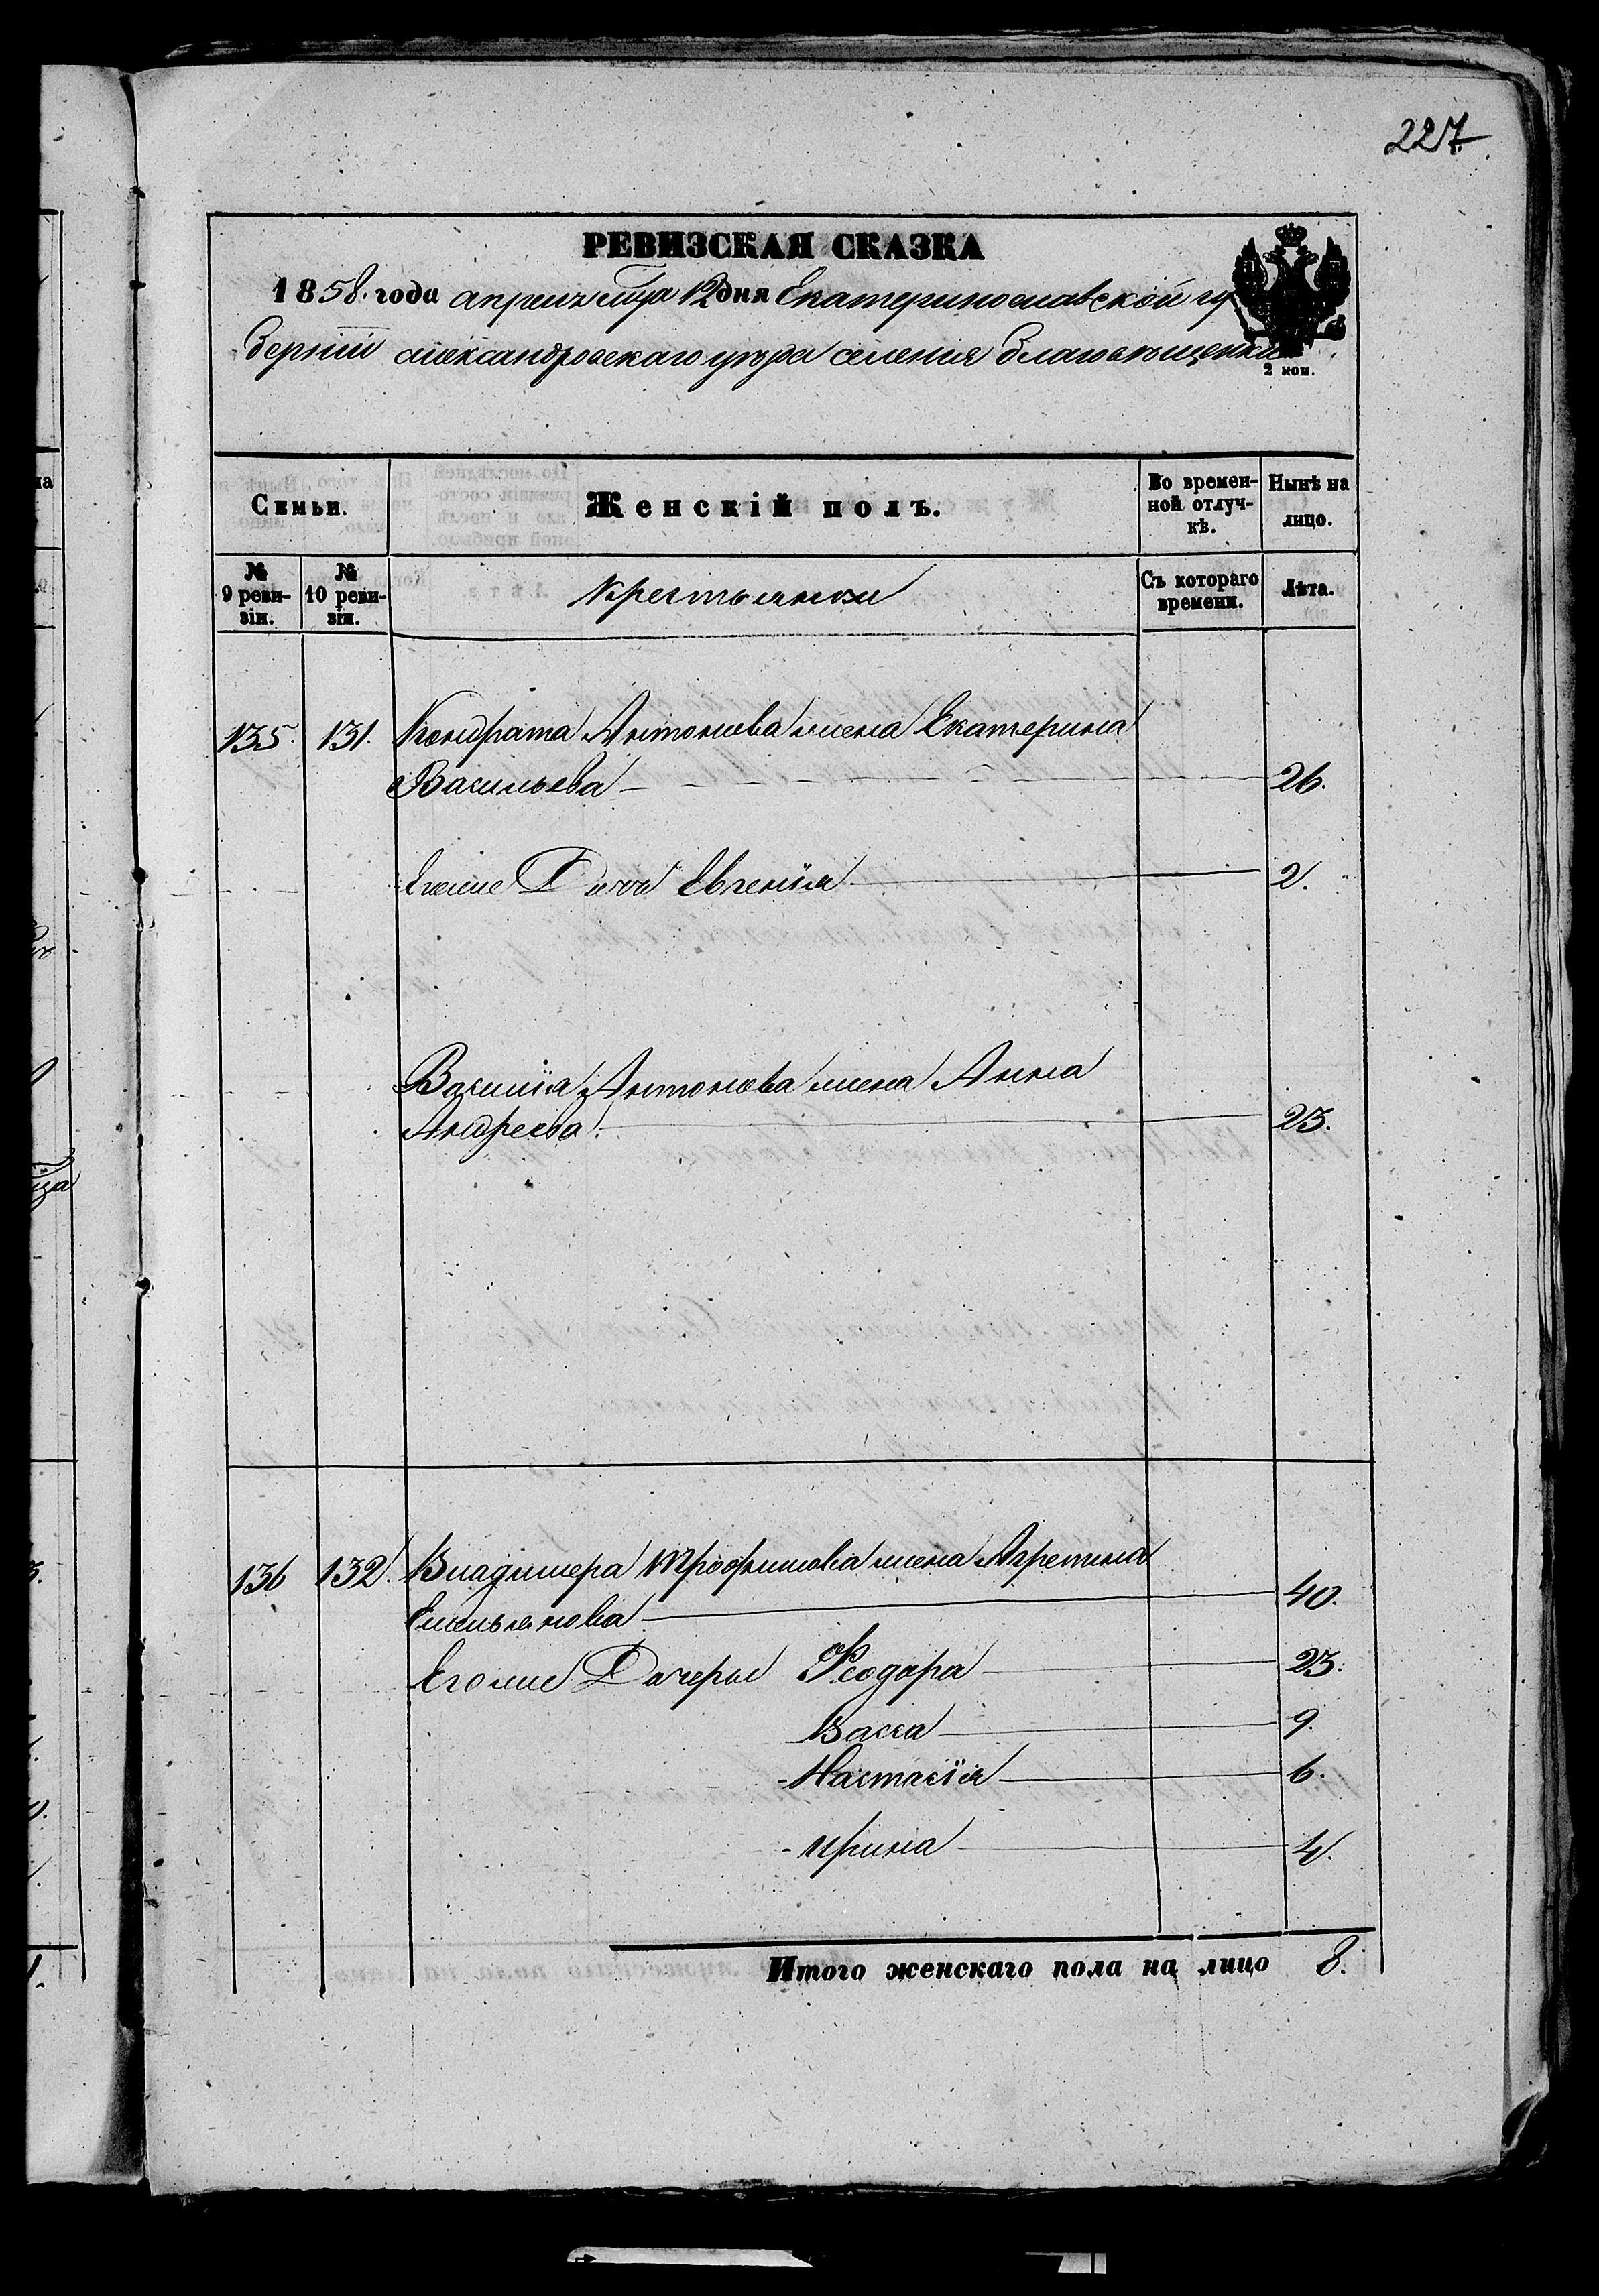 227
РЕВИЗСКАЯ СКАЗКА
1858. года апреля мца 12 дня Екатеринославской гу
берніи александровскаго уѣзда селения благовѣщенки
2 ком.
Семьи.
Женскій полъ.
Во времен-
ной отлуч-
кѣ.
Нынѣ на
лицо.
№
9 реви-
зіи.
№
10 реви-
зіи.
Крестьянки
Съ котораго
времени.
Лѣта.
135. 131. Кондрата Антонова жена Екатерина
Васильева 26.
Егоже Дочь Евгенія 2.
Василія Антонова жена Анна
Андреева. 23.
136 132. Владимера Трофимова жена Агрепина
Емельянова 40.
Егоже Дочерые Феодора 23.
Васса 9.
Настасія 6.
Ирина 4.
Итого женскаго пола на лицо 8.